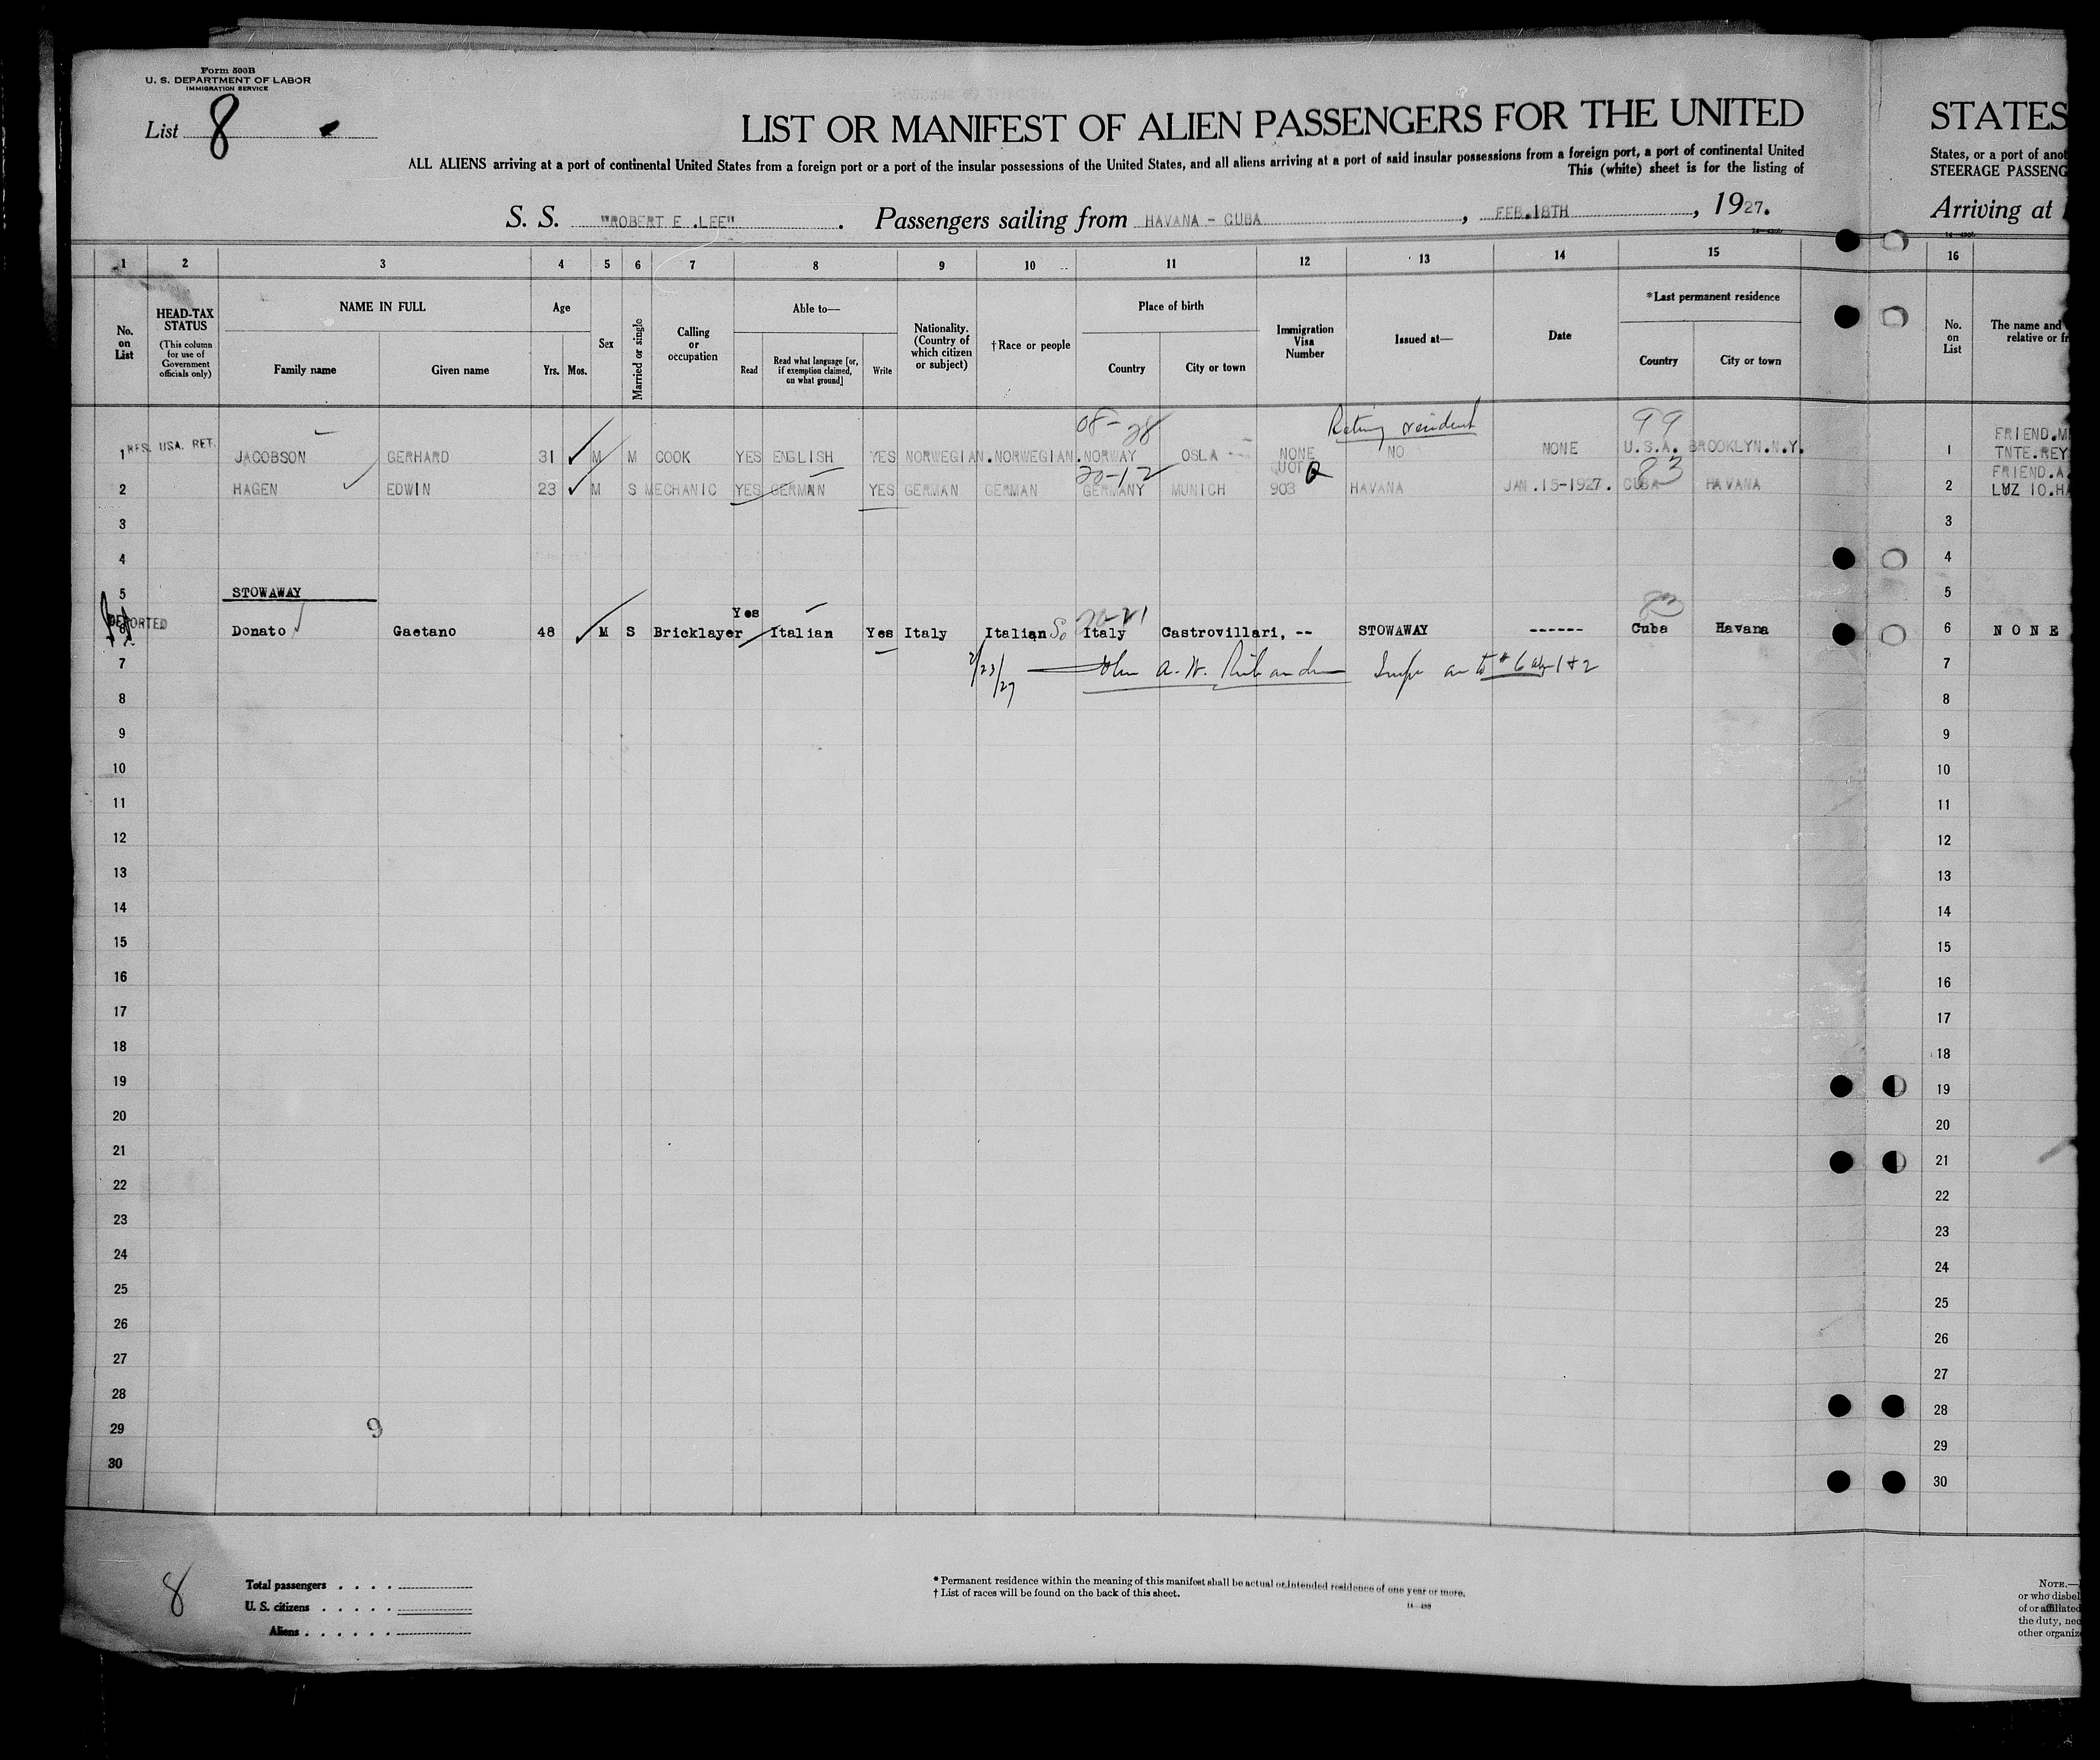 Form 500B
U. S. DEPARTMENT OF LABOR
IMMIGRATION SERVICE
List 8
LIST OR MANIFEST OF ALIEN PASSENGERS FOR THE UNITED
ALL ALIENS arriving at a port of continental United States from a foreign port or a port of the insular possessions of the United States, and all aliens arriving at a port of said insular possessions from a foreign port, a port of continental United
This (white) sheet is for the listing of
S. S. "ROBERT E .LEE". Passengers sailing from HAVANA - CUBA, FEB.18TH, 1927.
STATES
States, or a port of anot
STEERAGE PASSENG
Arriving at
1 2 3 4 5 6 7 8 9 10 11 12 13 14 15 16
No. on List
HEAD-TAX STATUS (This column for use of Government officials only)
NAME IN FULL
Family name Given name
Age
Yrs. Mos.
Sex
Married or single
Calling or occupation
Able to—
Read
Read what language [or, if exemption claimed, on what ground]
Write
Nationality. (Country of which citizen or subject)
†Race or people
Place of birth
Country City or town
Immigration Visa Number
Issued at—
Date
*Last permanent residence
Country City or town
No. on List
The name and
relative or fr
08-28 99
1 RES. USA. RET. JACOBSON GERHARD 31 M M COOK YES ENGLISH YES NORWEGIAN.NORWEGIAN.NORWAY OSLA NONE NO NONE U.S.A. BROOKLYN.N.Y. 1 FRIEND.M
TNTE.REY
20-12 QUOT 83
2 HAGEN EDWIN 23 M S MECHANIC YES GERMAN YES GERMAN GERMAN GERMANY MUNICH 903 HAVANA JAN.15-1927. CUBA HAVANA 2 FRIEND.A
LUZ 10.HA
3 3
4 4
5 STOWAWAY 5
83
6 DEPORTED Donato Gaetano 48 M S Bricklayer Yes Italian Yes Italy Italian So Italy Castrovillari, -- STOWAWAY ------ Cuba Havana 6 N O N E
7 2/23/27 7
8 8
9 9
10 10
11 11
12 12
13 13
14 14
15 15
16 16
17 17
18 18
19 19
20 20
21 21
22 22
23 23
24 24
25 25
26 26
27 27
28 28
29 9 29
30 30
8
Total passengers
U. S. citizens
Aliens
* Permanent residence within the meaning of this manifest shall be actual or intended residence of one year or more.
† List of races will be found on the back of this sheet.
NOTE.—
or who disbel
of or affiliated
the duty, nec
other organiz